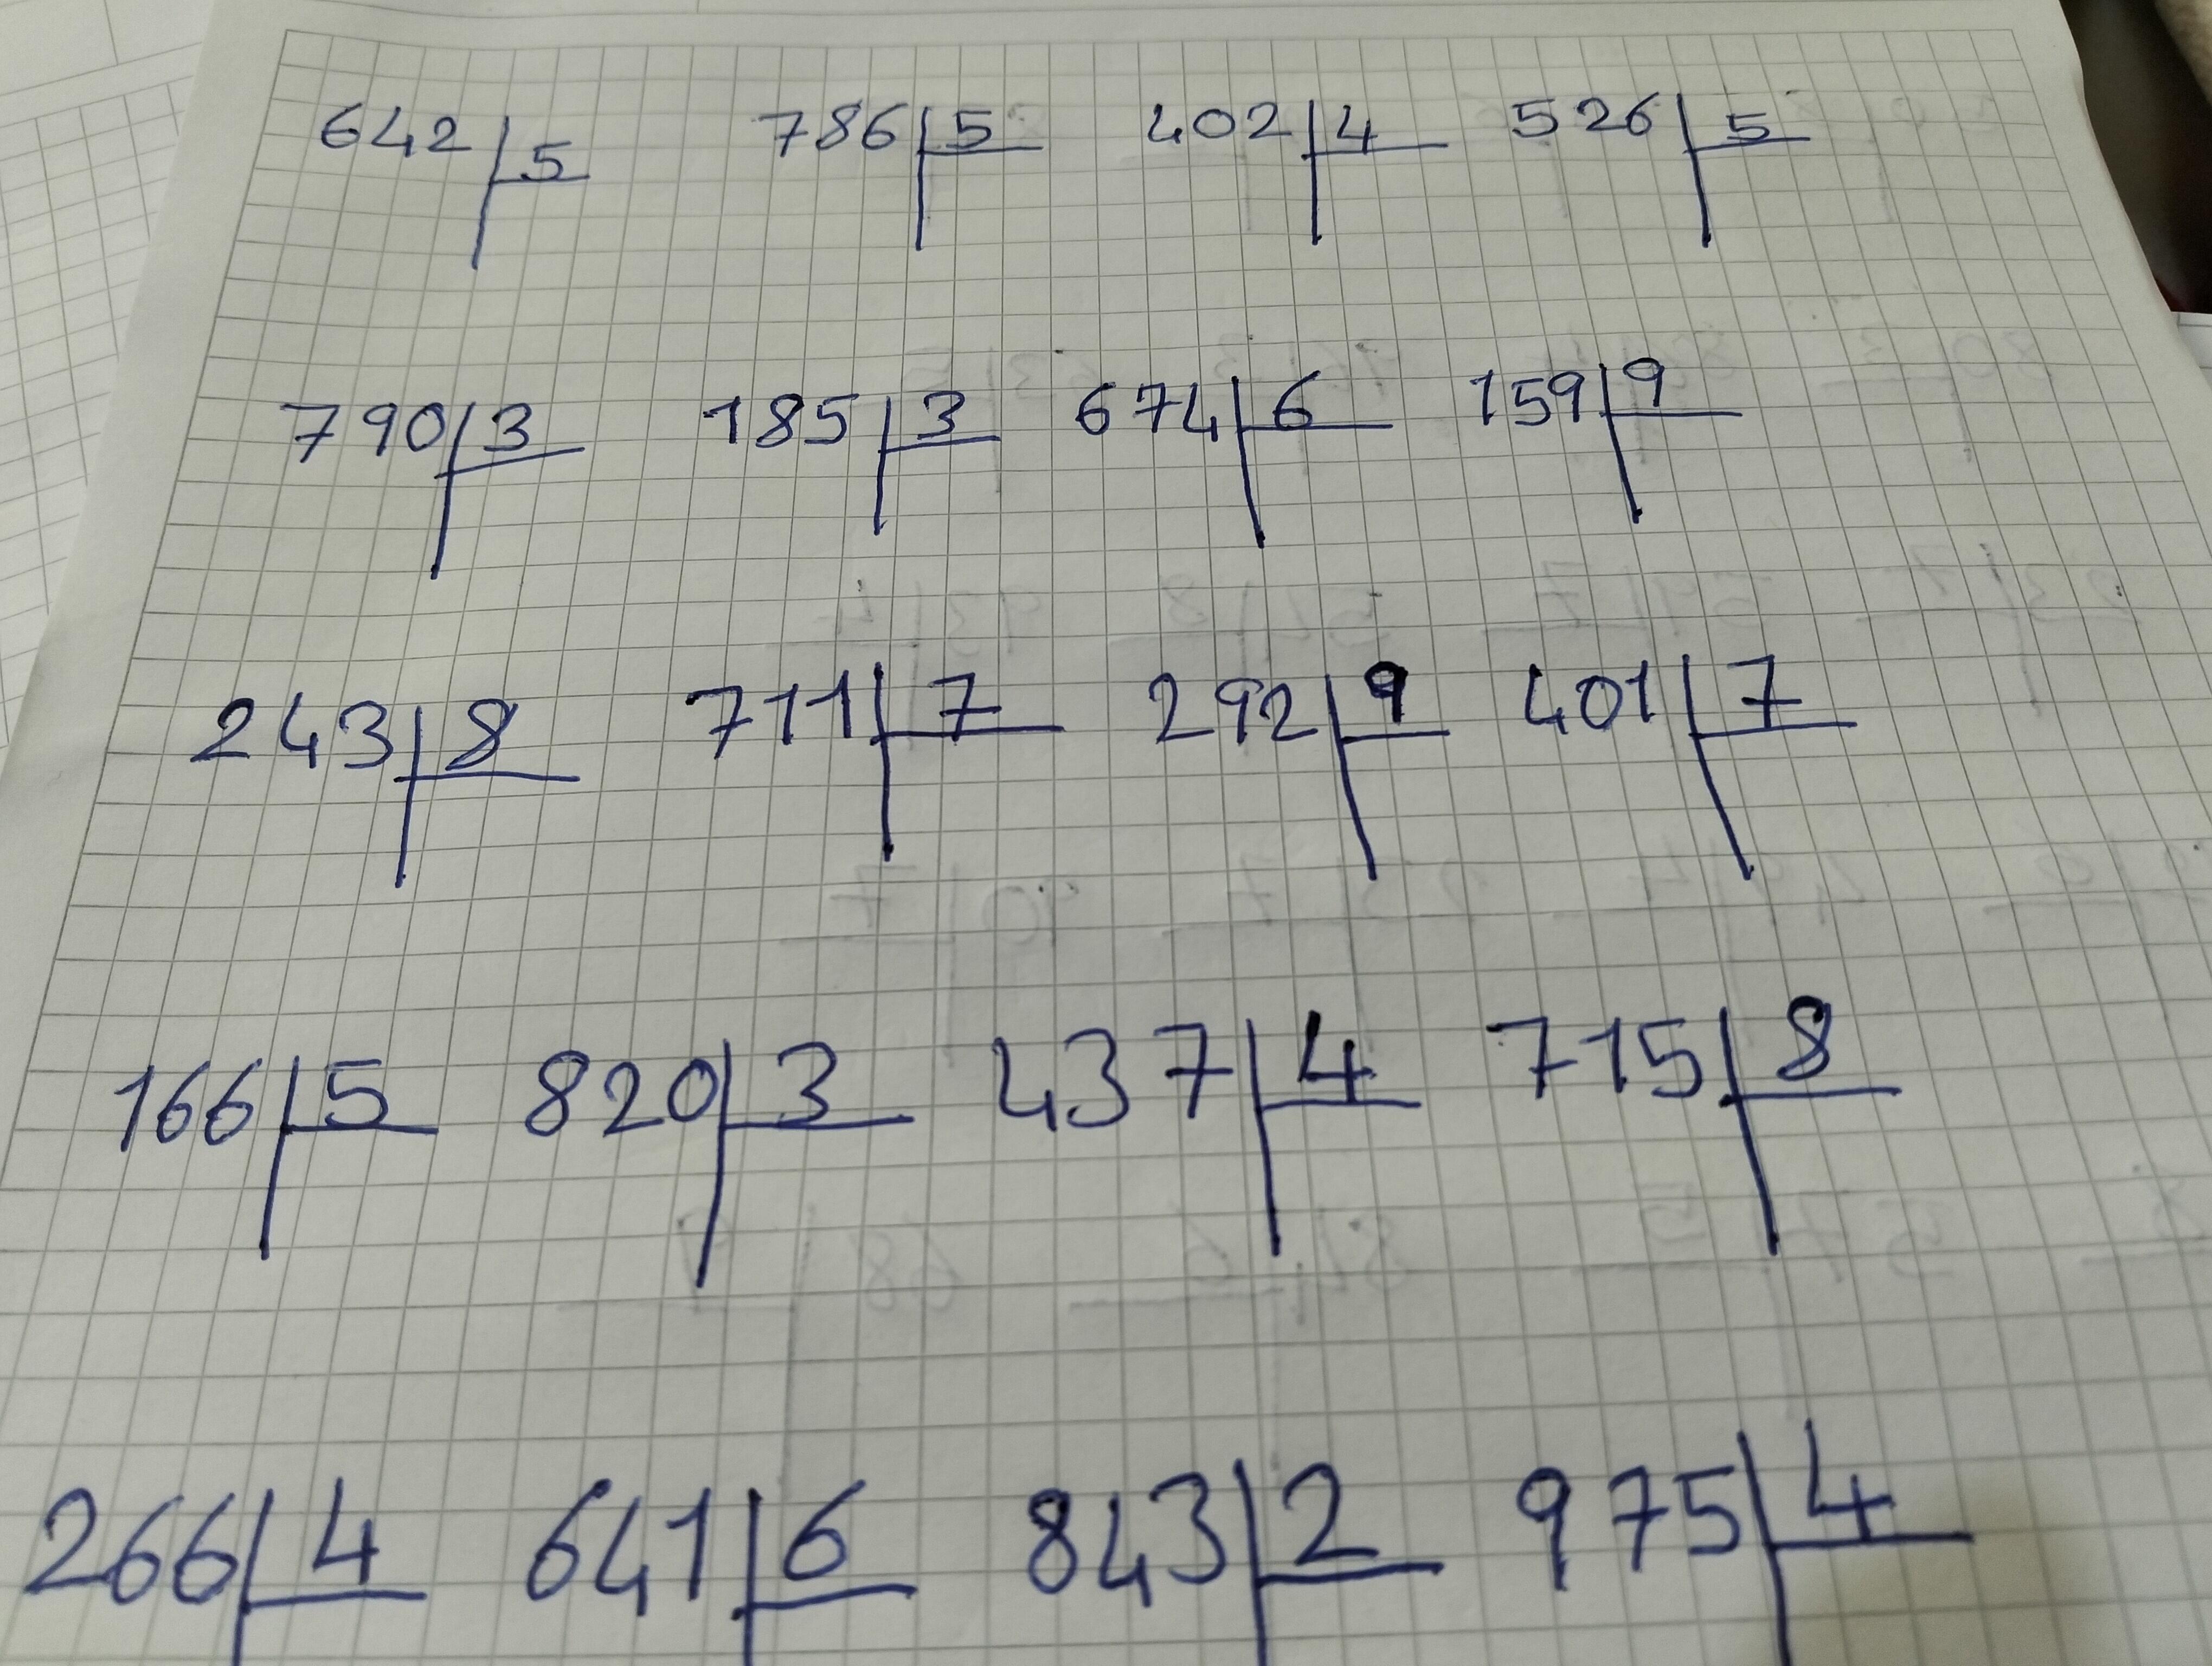 642 | 5 786 | 5 402 | 4 526 | 5
790 | 3 185 | 3 674 | 6 159 | 9
243 | 8 711 | 7 292 | 9 401 | 7
166 | 5 820 | 3 437 | 4 715 | 8
266 | 4 641 | 6 843 | 2 975 | 4